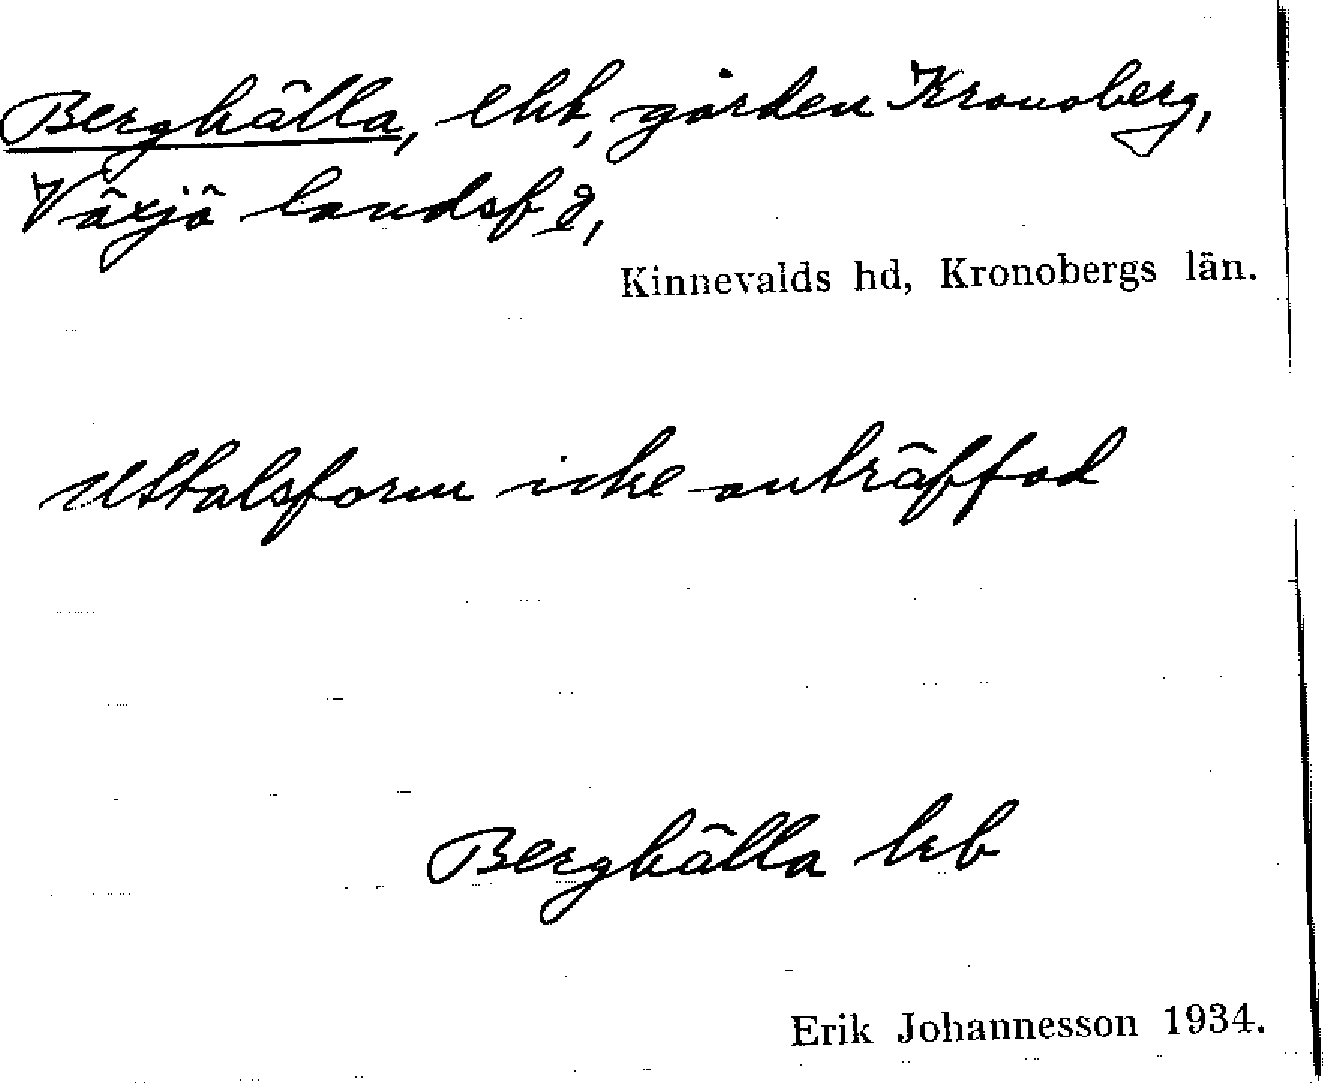 Berghälla, lht, gården Kronoberg,
Växjö landsf d,
Kinnevalds hd, Kronobergs län.
Uttalsform icke anträffad
Berghälla hrb
Erik Johannesson 1934.